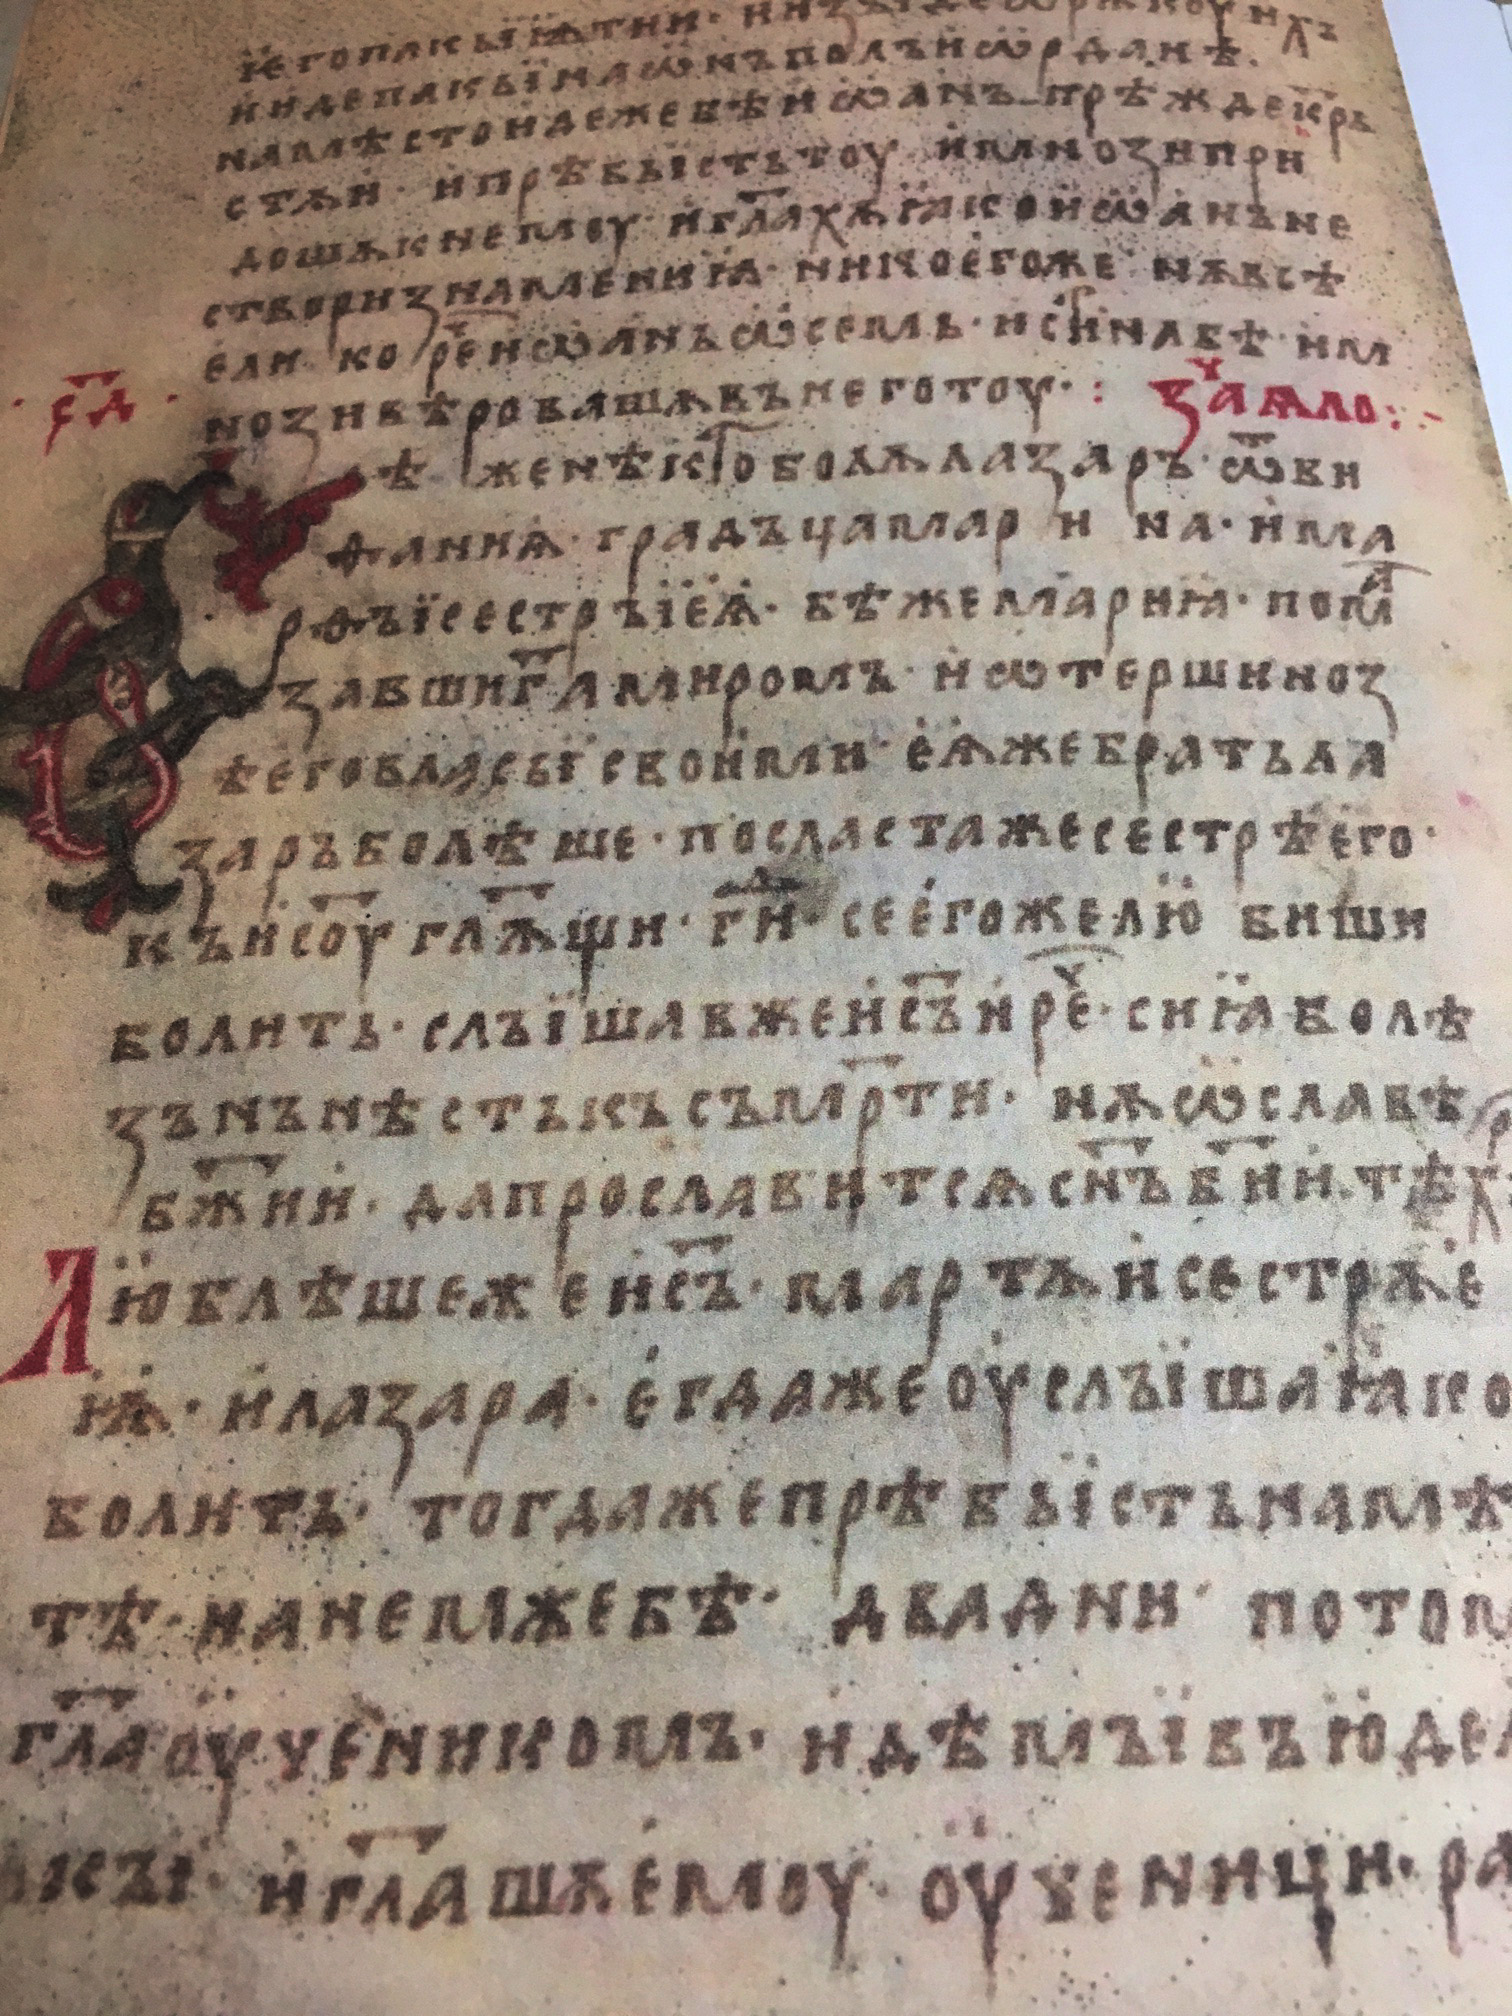 ѥгопакыꙗтни· низидеѿрѫкоуихъ
иидепакыинаѡнъполъиѡрданѣ·
намѣстоидежебѣиѡанъпрѣждекрь
стѧи· ипрѣбыⷭ҇тьтоу· имнозипри
дошѫкнемоу· иг҃лахѫꙗкоиѡанъне
створизнамениꙗ· никоегоже· нѫвьсѣ
ели ко реч҇иѡанъѡсемь· истинабѣ· им
нозивѣровашѫвънеготоу· : заⷱ҇ало:·
·с҃д·
Бѣ женѣктоболѧлазаръ· ѿви
ѳаниѧ· градъцамар и на· има
рѳъісестръіеѧ· бѣжемариꙗ· помаⷥ
завшиг҃амиромъ· иѡтершиноз
ѣеговласъісвоими· еѧжебратьла
заръболѣше· посластажесестрѣего·
къи҃соуг҃лѫщи· г҃и· сеегожелю биши
болить· слъішавжеи҃съиреⷱ҇· сиꙗболѣ
знънѣстькъсъмр҃ти· нѫѡславѣ
б҃жии· дапрославитсѧс҃нъб҃ии·тѣⷨ
Люблѣшежеи҃съ· мартѫисестрѫе
ѩ· илазара· егдажеоуслъішаꙗко
болить· тогдажепрѣбъістьнамѣ
тѣ· нанемжебѣ· двадни· потом
г҃лаоученикомъ· идѣмъівъюде
ікъі· иг҃лашѫемоу· оученици· ра